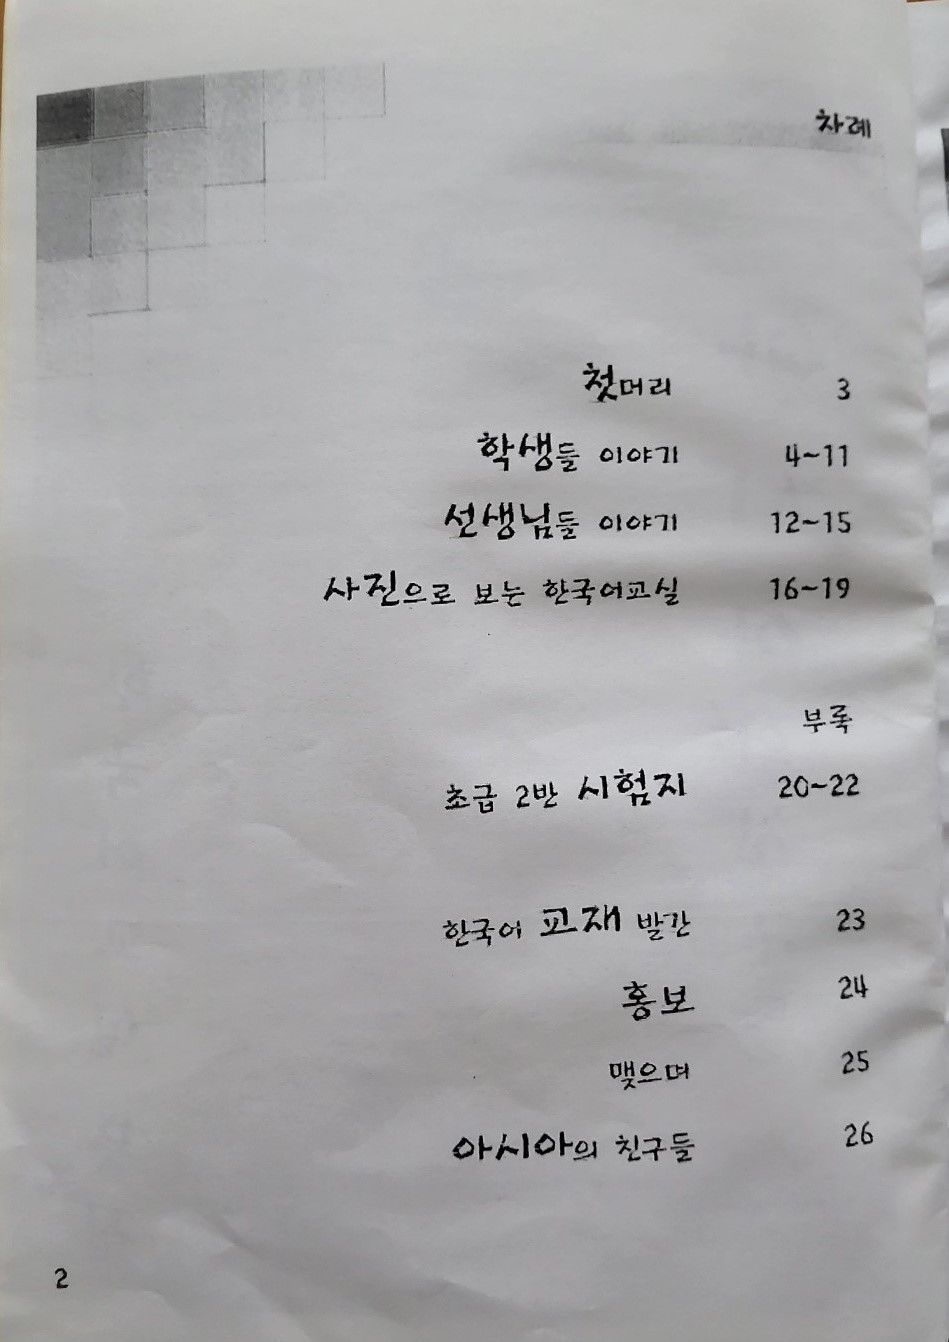 차례
첫머리 3
학생들 이야기 4~11
선생님들 이야기 12~15
사진으로 보는 한국어교실 16~19
부록
초급 2반 시험지 20~22
한국어 교재 발간 23
홍보 24
맺으며 25
아시아의 친구들 26
2